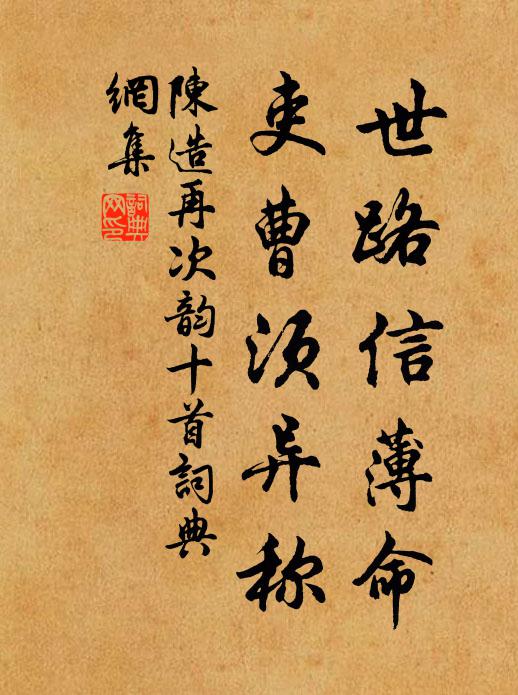 世路信薄命
吏曹须异称
陳造再次韵十首詞典
網集
詞典
网印